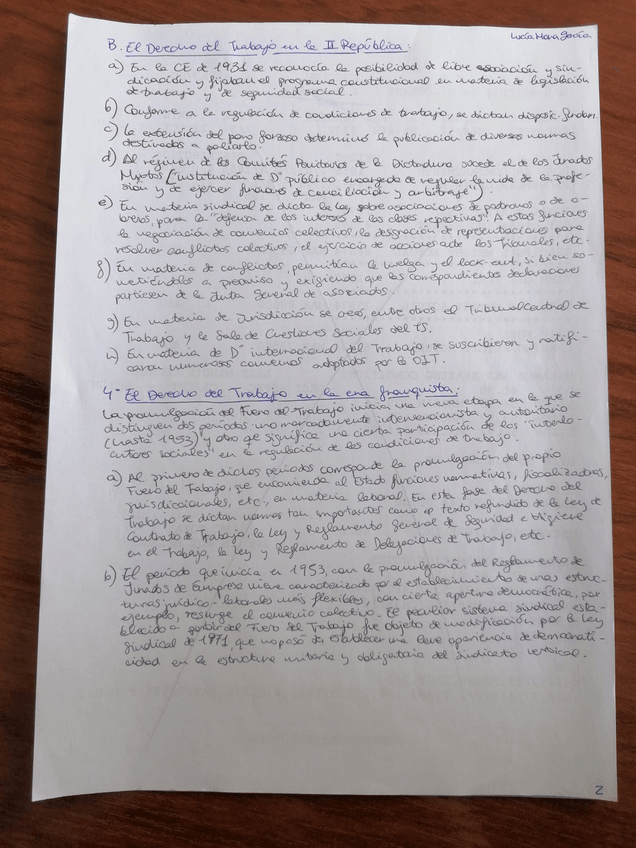 Lucía Mora García
B. El Derecho del Trabajo en la II República:
a) En la CE de 1931 se reconocía la posibilidad de libre asociación y sin-
dicación y fijaban el programa constitucional en materia de legislación
de trabajo y de seguridad social.
b) Conforme a la regulación de condiciones de trabajo, se dictan disposic. fundam.
c) La extensión del paro forzoso determinó la publicación de diversas normas
destinadas a paliarlo.
d) Al régimen de los Comités Paritarios de la Dictadura sucede el de los Jurados
Mixtos ("institución de Dº público encargada de regular la vida de la profe-
sión y de ejercer funciones de conciliación y arbitraje").
e) En materia sindical se dicta la Ley sobre asociaciones de patronos o de o-
breros, para la "defensa de los interes de las clases respectivas". A estas funciones
la negociación de convenios colectivos, la designación de representaciones para
resolver conflictos colectivos, el ejercicio de acciones ante los Tribunales, etc.
f) En materia de conflictos, permitían la huelga y el lock-out, si bien so-
metiéndolos a preaviso y exigiendo que las correspondientes declaraciones
partiesen de la Junta General de asociados.
g) En materia de Jurisdicción se creó, entre otros el Tribunal Central de
Trabajo y la Sala de Cuestiones Sociales del TS.
h) En materia de Dº internacional del Trabajo, se suscribieron y ratifi-
caron numerosos convenios adoptados por la OIT.
4- El Derecho del Trabajo en la era franquista:
La promulgación del Fuero del Trabajo inicia una nueva etapa en la que se
distinguen dos períodos: uno marcadamente intervencionista y autoritario
(hasta 1953) y otro que significa una cierta participación de los "interlo-
cutores sociales" en la regulación de las condiciones de trabajo.
a) Al primero de dichos períodos corresponde la promulgación del propio
Fuero del Trabajo, que encomienda al Estado funciones normativas, fiscalizadoras,
jurisdiccionales, etc., en materia laboral. En esta fase del Derecho del
Trabajo se dictan normas tan importantes como el texto refundido de la Ley de
Contrato de Trabajo, la Ley y Reglamento General de Seguridad e Higiene
en el Trabajo, la Ley y Reglamento de Delegaciones de Trabajo, etc.
b) El período que inicia en 1953, con la promulgación del Reglamento de
Jurados de Empresa viene caracterizado por el establecimiento de unas estruc-
turas jurídico-laborales más flexibles, con cierta apertura democrática, por
ejemplo, resurge el convenio colectivo. El peculiar sistema sindical esta-
blecido a partir del Fuero del Trabajo fue objeto de modificación por la Ley
Sindical de 1971, que no pasó de establecer una leve apariencia de democrati-
cidad en la estructura unitaria y obligatoria del sindicato vertical.
2